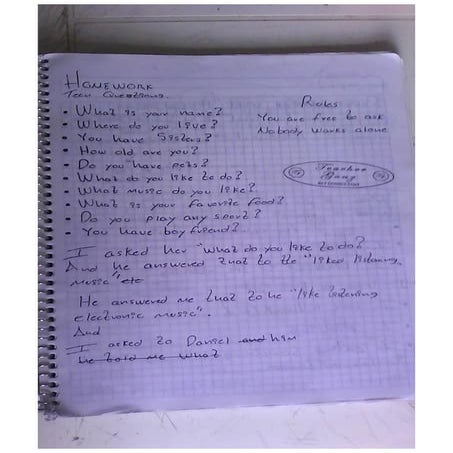 HOMEWORK
Teen Questions.
- What is your name?
- Where do you live?
- You have Sisters?
- How old are you?
- Do you have pets?
- What do you like to do?
- What music do you like?
- What is your favorite food?
- Do you play any sport?
- You have boy friend?
Rules
You are free to ask
Nobody works alone
Teacher
I asked her "What do you like to do?
And he answered that to the "liked listening
music" etc
He answered me that to he "like listening
electronic music".
And
I asked to Daniel and him
he told me what